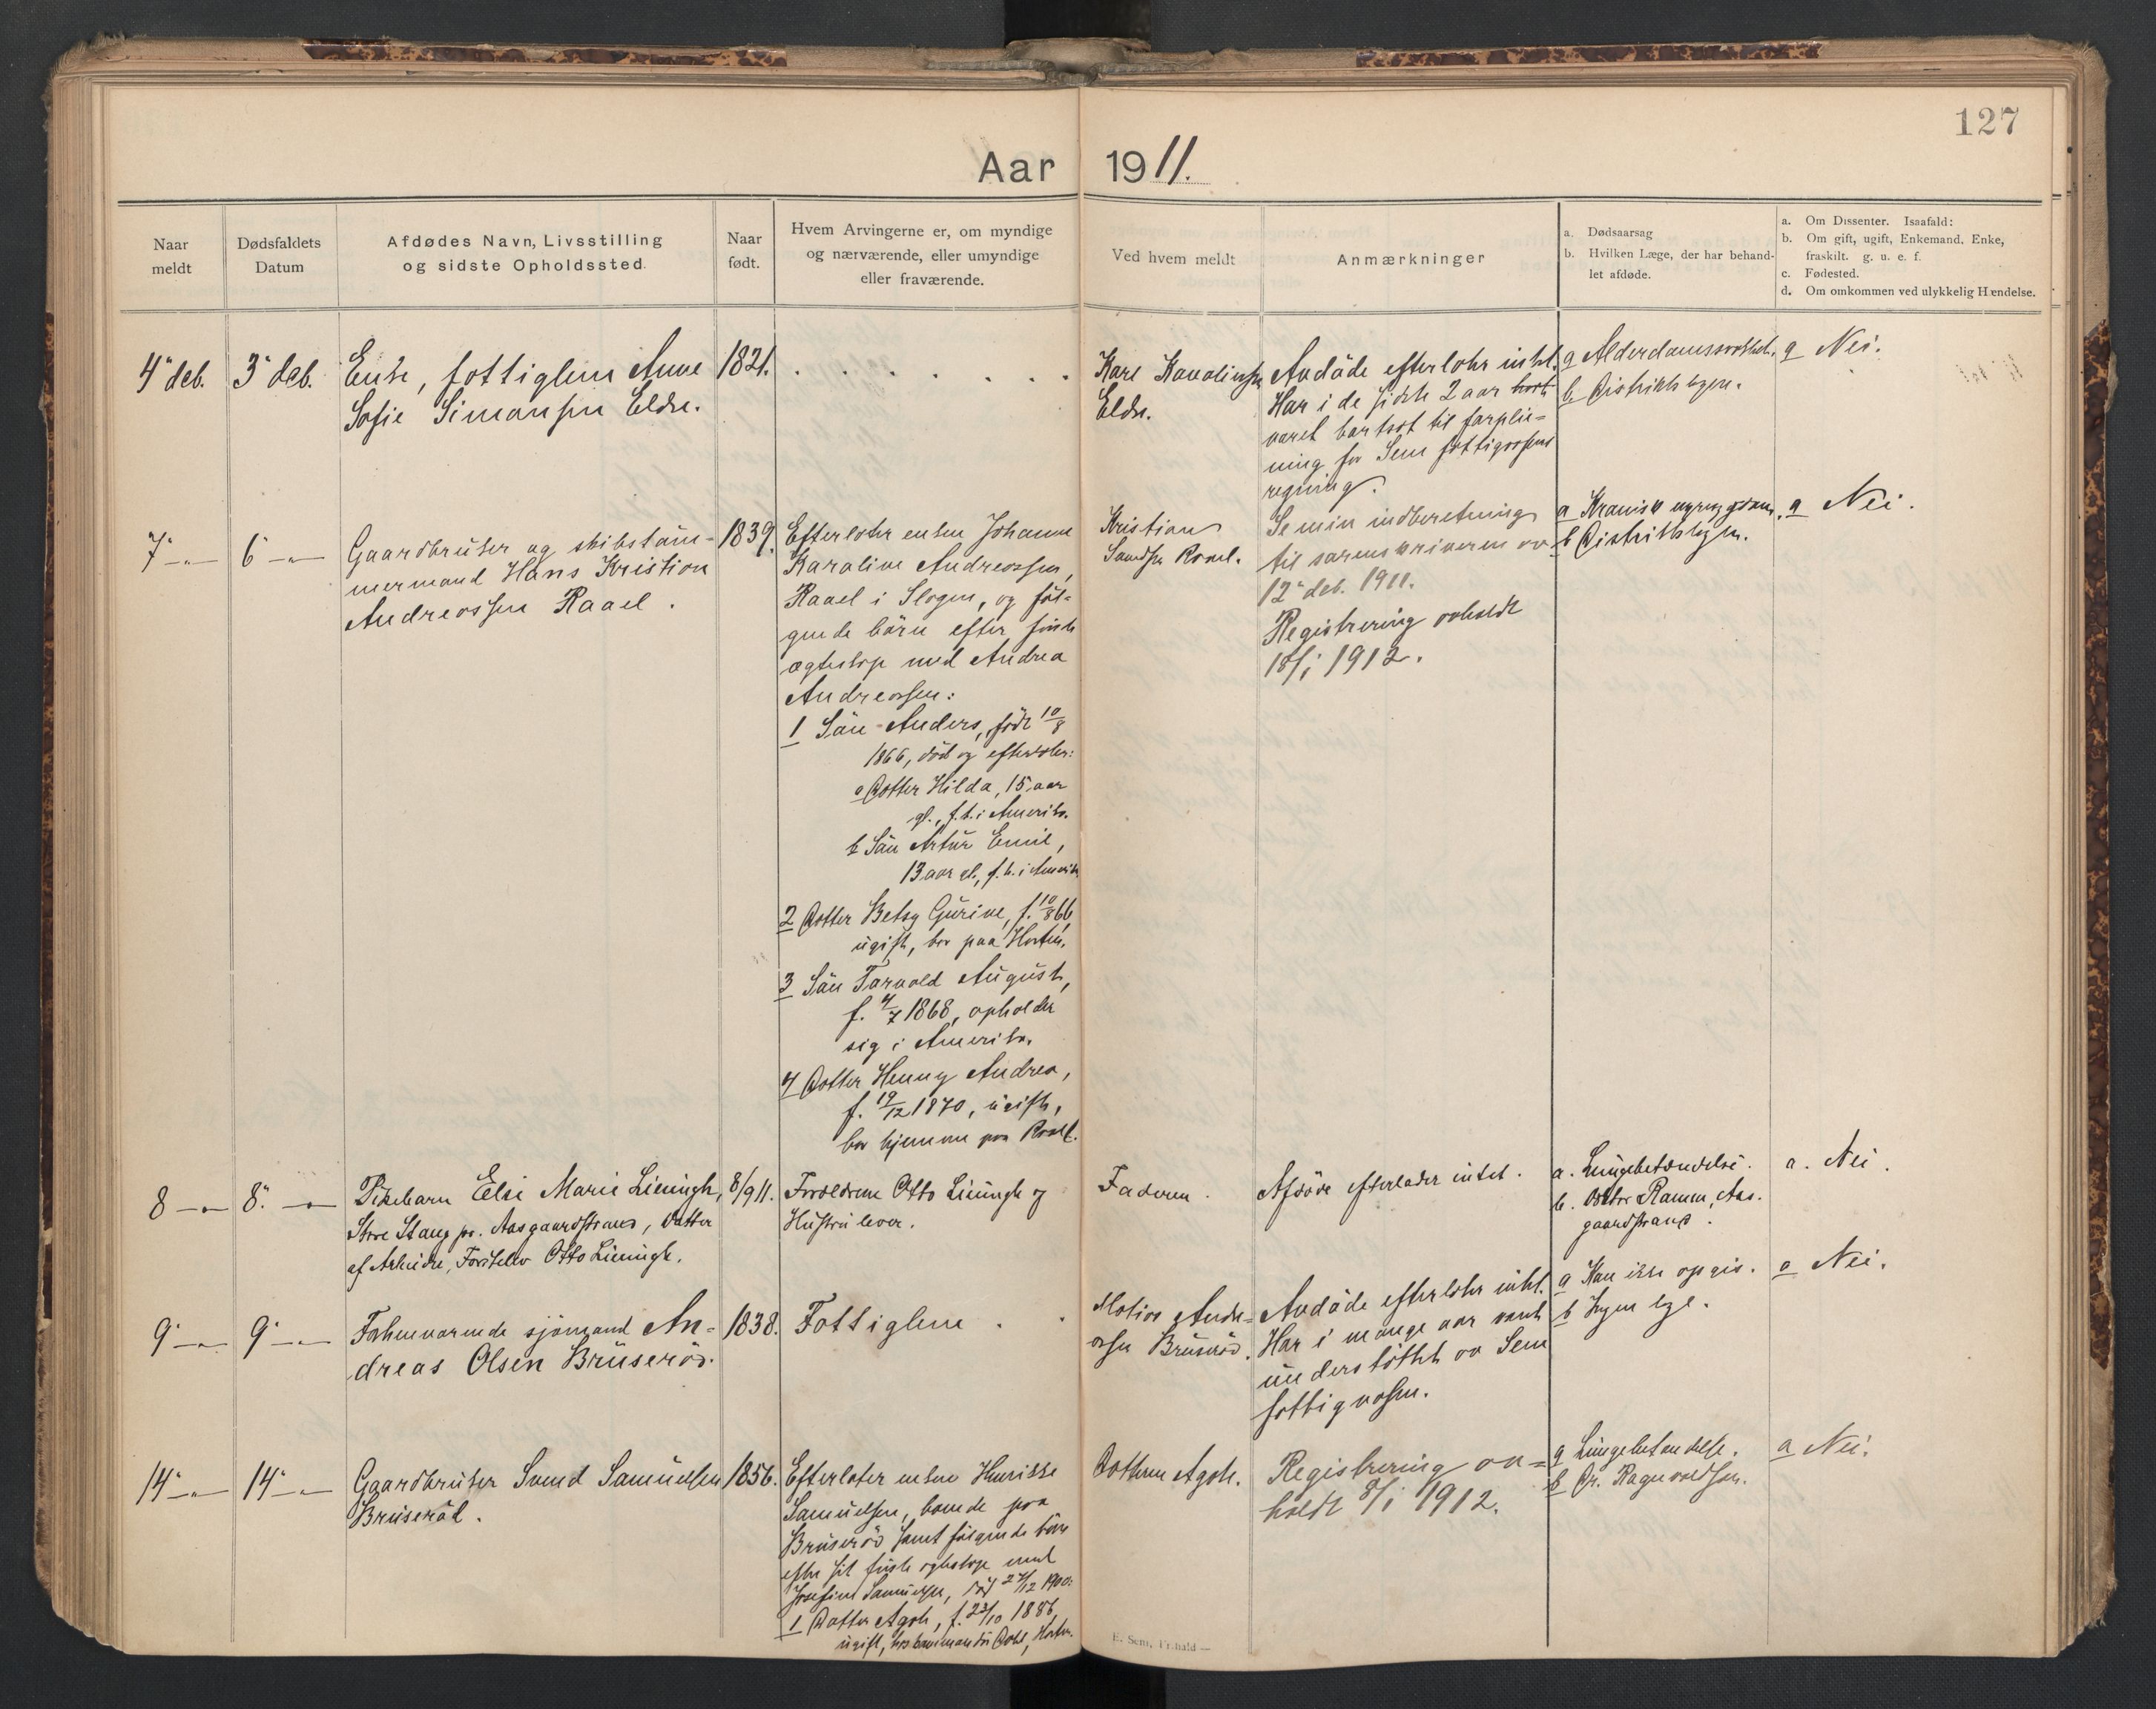 127
Aar 1911.
Naar meldt
Dødsfaldets Datum
Afdødes Navn, Livsstilling
og sidste Opholdssted.
Naar født.
Hvem Arvingerne er, om myndige
og nærværende, eller umyndige
eller fraværende.
Ved hvem meldt
Anmærkninger
a. Dødsaarsag
b. Hvilken Læge, der har behand-
let afdøde.
a. Om Dissenter. Isaafald:
b. Om gift, ugift, Enkemand, Enke,
fraskilt. g. u. e. f.
c. Fødested.
d. Om omkommen ved ulykkelig Hændelse.
4' deb. 3' deb.
Enke, fattiglem Anne
Sofie Simonsen Eldre.
1821.
Karl
Eldre.
Avdöde efterlater intet.
Har i de sidste 2 aar
været bortsat til forplei-
ning for Sem fattigvæsens
regning.
a Alderdomssvakhet.
b Distriktslægen.
a Nei.
7' 6'
Gaardbruker og skibstöm-
mermand Hans Kristian
Andreassen Raael.
1839.
Efterlater enken Johanne
Karoline Andreassen,
Raael i Slagen, og föl-
gende börn efter förste
egteskap med Andrea
Andreassen:
1 Sön Anders, födt 10/8
1866, död og efterlater:
a Datter Hilda, 15 aar
gl., f. t. i Amerika.
b Sön Artur Emil,
13 aar gl., f. t. i Amerika
2 Datter Betsy Gurine, f. 10/8 66,
ugift, bor paa Horten.
3 Sön Torvald August,
f. 4/7 1868, opholder
sig i Amerika.
4 Datter Henny Andrea,
f. 19/12 1870, ugift,
bor hjemme paa Raael.
Kristian
Raael.
Se min indberetning
til sorenskriveren av
12' deb. 1911.
Registrering avholdt
18/1 1912.
a Kronisk
b Distriktslægen.
a Nei.
8 8.
Pikebarn Else Marie Lieungh,
Store Stang pr. Aasgaardstrand, Datter
af Arbeider, Otto Lieungh.
8/9 11.
Forældrene Otto Lieungh og
Hustru lever.
Faderen.
Afdöde efterlader intet.
a. Lungebetændelse.
b. Doktor Ramm, Aas-
gaardstrand.
a. Nei.
9' 9'
Forhenværende sjömand An-
dreas Olsen Bruseröd.
1838.
Fattiglem.
Andre-
assen Bruseröd.
Avdöde efterlater intet.
Har i mange aar været
understöttet av Sem
fattigvæsen.
a Kan ikke opgis.
b Ingen læge.
a Nei.
14' 14'
Gaardbruker Svend Samuelsen
Bruseröd.
1856.
Efterlater enken
Samuelsen, boende paa
Bruseröd samt fölgende börn
efter sit förste egteskap med
Josefine Samuelsen, död 27/12 1900:
1 Datter Agote, f. 23/10 1886,
ugift, Horten.
Datteren Agote.
Registrering av-
holdt 8/1 1912.
a Lungebetændelse.
b Dr. Ragnvaldsen.
a Nei.